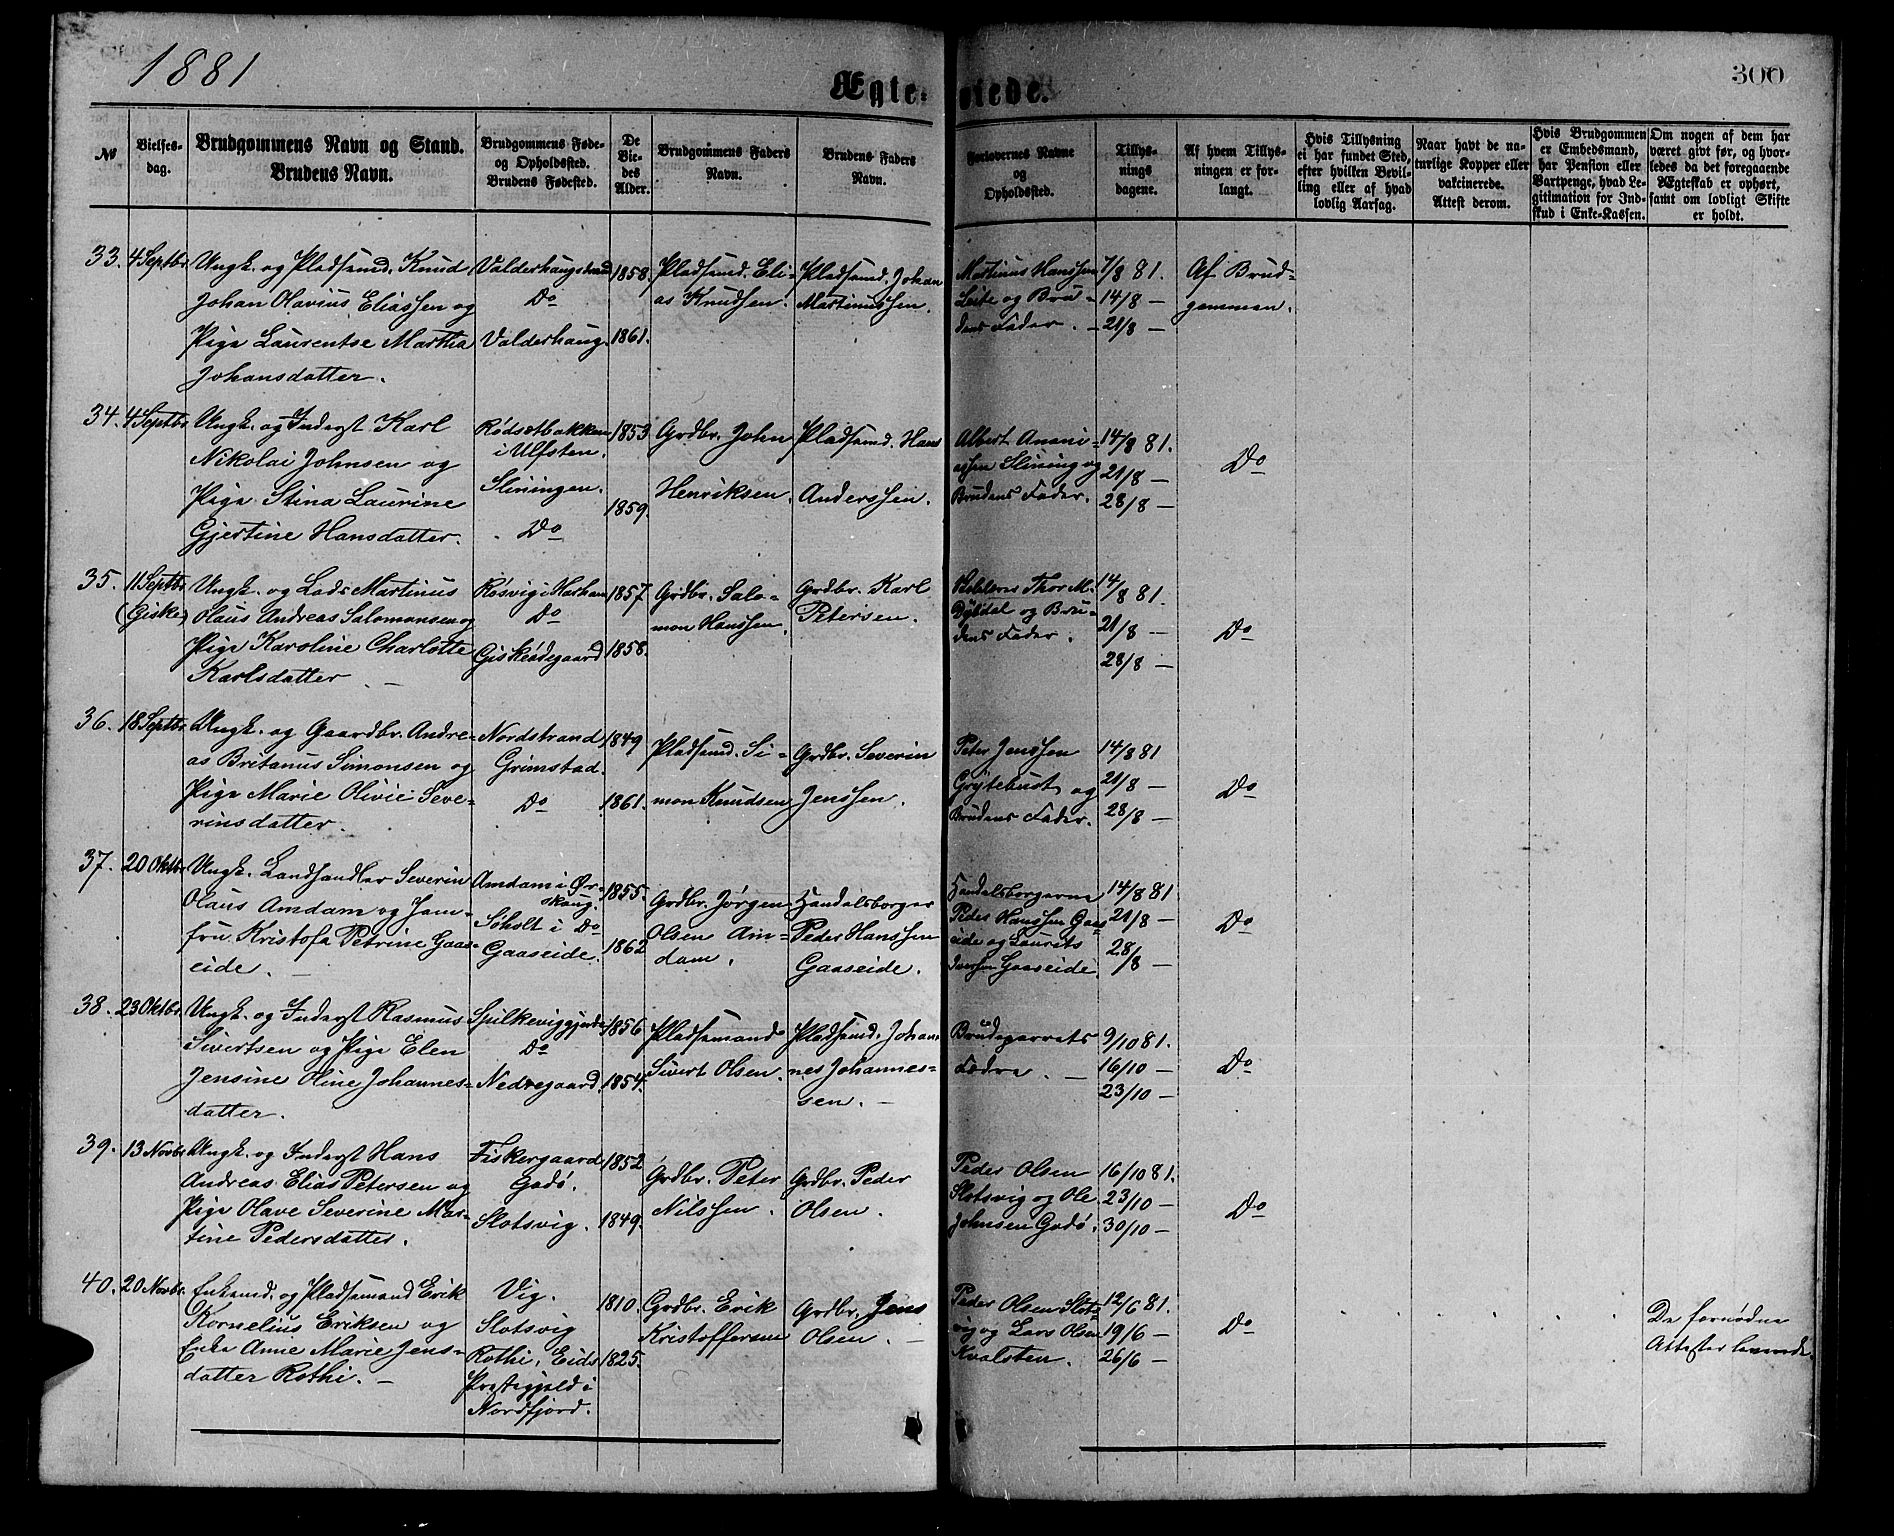 1881
Ægteviede.
300
№
Vielses-
dag.
Brudgommens Navn og Stand.
Brudens Navn.
Brudgommens Føde-
og Opholdssted.
Brudens Fødested.
De
Vie-
des
Alder.
Brudgommens Faders
Navn.
Brudens Faders
Navn.
Forlovernes Navne
og
Opholdssted.
Tillys-
nings
dagene.
Af hvem Tillys-
ningen er for-
langt.
Hvis Tillysning
ei har fundet Sted,
efter hvilken Bevil-
ling eller af hvad
lovlig Aarsag.
Naar havt de na-
turlige Kopper eller
vakcinerede.
Attest derom.
Hvis Brudgommen
er Embedsmand,
har Pension eller
Vartpenge, hvad Le-
gitimation for Ind-
skud i Enke-Kassen.
Om nogen af dem har
været givt før, og hvor-
ledes da det foregaaende
Ægteskab er ophørt,
samt om lovligt Skifte
er holdt.
33. 4 Septbr.
Ungk. og Pladsmd. Knud
Johan Olavius Eliassen og
Pige Laurentse Martha
Johansdatter.
Do
Valderhaug.
1858.
1861.
Pladsmd. Eli-
as Knudsen.
Pladsmd. Johan
Martinussen.
Martinus Hanssen
Leite og Bru-
dens Fader. —
7/8 81.
14/8 —
21/8 —
Af Brud-
gommen.
34. 4 Septbr
Ungk. og Inderst Karl
Nikolai Johnsen og
Pige Stina Laurine
Gjertine Hansdatter.
Rødsetbakken
i Ulfsten.
Sliningen.
Do
1853
1859.
Grdbr. John
Henriksen.
Pladsmd. Hans
Anderssen.
Albert Anani-
assen Slining og
Brudens Fader.
14/8 81.
21/8 —
28/8 —
Do
35. 11 Septbr
(Giske)
Ungk. og Lods Martinus
Olaus Andreas Salomonsen og
Pige Karoline Charlotte
Karlsdatter —
Røsvig i Harham
Do
Giskeødegaard
1857.
1858.
Grdbr. Salo-
mon Hanssen.
Grdbr. Karl
Petersen.
Thor M.
Dybdal og Bru-
dens Fader.
14/8 81.
21/8 —
28/8 —
Do
36. 18 Septbr.
Ungk. og Gaardbr. Andre-
as Britanus Simonsen og
Pige Marie Olivie Seve-
rinsdatter.
Nordstrand
Grimstad.
Do
1849
1861.
Pladsmd. Si-
mon Knudsen
Grdbr. Severin
Jenssen.
Peter Jenssen
Grytebust og
Brudens Fader.
14/8 81
21/8 —
28/8 —
Do
37. 20 Oktbr
Ungk. Landhandler Severin
Olaus Amdam og Jom-
fru Kristofa Petrine Gaas-
eide. —
Amdam i Ør-
skoug.
Søholt i Do
Gaaseide.
1855.
1862
Grdbr. Jørgen
Olsen Am-
dam.
Handelsborger
Peder Hanssen
Gaaseide.
Handelsborgerne
Peder Hanssen Gaas
eide og Laurits
Gaaseide
14/8 81
21/8 —
28/8 —
Do
38. 23 Oktbr.
Ungk. og Inderst Rasmus
Sivertsen og Pige Elen
Jensine Oline Johannes-
datter.
Do
Nedregaard.
1856.
1854.
Pladsemand
Sivert Olsen.
Pladsmd. Johan-
nes Johannes-
sen. —
Brudeparrets
Fædre. —
9/10 81.
16/10 —
23/10 —
Do
39. 13 Novbr
Ungk. og Inderst Hans
Andreas Elias Petersen og
Pige Olave Severine Mar-
tine Pedersdatter.
Fiskergaard
Godø.
Slotsvig.
1852
1849.
Grdbr. Peter
Nilssen.
Grdbr. Peder
Olsen.
Peder Olsen
Slotsvig og Ole
Johnsen Godø.
16/10 81.
23/10 —
30/10 —
Do
40. 20 Novbr.
Enkemd. og Pladsemand Erik
Kornelius Eriksen og
Enke Anne Marie Jens-
datter Rothi. —
Vig.
Slotsvig
Rothi, Eids
Prestegjeld i
Nordfjord.
1810.
1825.
Grdbr. Erik
Kristoffersen
Grdbr. Jens
Olsen. —
Peder Olsen Slots
vig og Lars Olsen
Kvalsten.
12/6 81.
19/6 —
26/6 —
Do
De fornødne
Attester